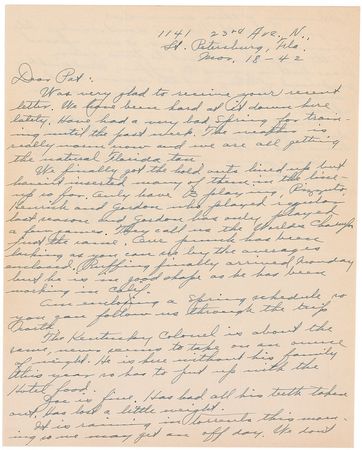 1141 23rd Ave. N.,
St. Petersburg, Fla.
Mar. 18 - 42
Dear Pat:
Was very glad to receive your recent
letter. We have been hard at it down here
lately. Have had a very bad Spring for train-
ing until the past week. The weather is
really warm now and we are all getting
the natural Florida tan.
We finally got the hold outs lined up but
havent inserted many of them in the line-
up so far. Only have playing, Rizzuto,
and Gordon who played regular
last season and Gordon has only played
a few games. They call us the Worlds Champs
just the same. Our punch has been
lacking as you can see by the averages
enclosed. Ruffing finally arrived Monday
but he is in good shape as he has been
working in Calif.
Am enclosing a Spring schedule so
you can follow us through the trip
North.
The Kentucky Colonel is about the
same, never seems to take on an ounce
of weight. He is here without his family
this year so has to put up with the
Hotel food.
Doc is fine. Has had all his teeth taken
out. Has lost a little weight.
It is raining in torrents this mor-
ning so we may get an off day. We don't